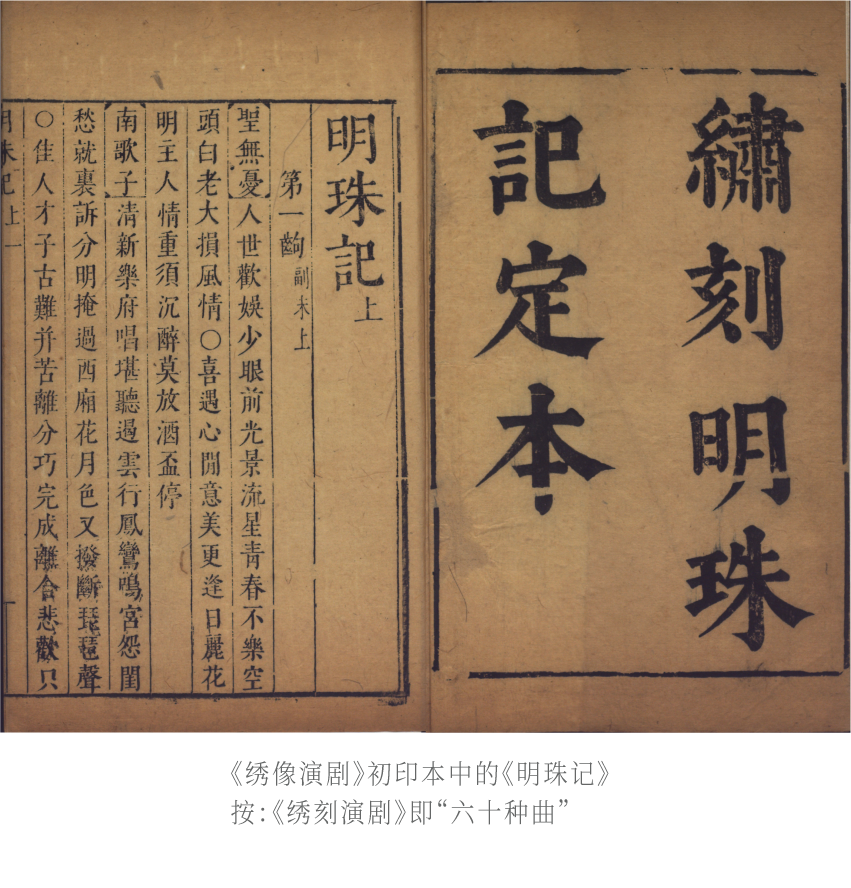 繡刻明珠
記定本
明珠記上
第一齣 副末上
【聖無憂】人世歡娛少眼前光景流星青春不樂空
頭白老大損風情○喜遇心閒意美更逢日麗花
明主人情重須沉醉莫放酒盃停
【南歌子】清新樂府唱堪聽遏雲行鳳鸞鳴宮怨閨
愁就裏訴分明掩過西廂花月色又撥斷琵琶聲
○佳人才子古難并苦離分巧完成離合悲歡只
明珠記 上 一
《绣像演剧》初印本中的《明珠记》
按:《绣刻演剧》即“六十种曲”